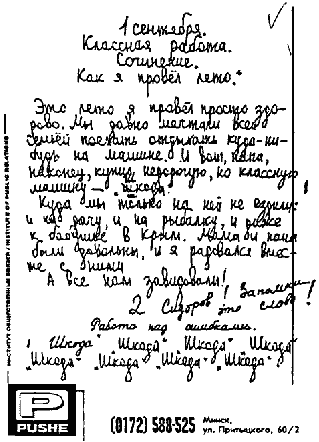 1 сентября.
Классная работа.
Сочинение.
Как я провёл лето.
Это лето я провёл просто здо-
рово. Мы давно мечтали всей
семьёй поехать отдыхать куда-ни-
будь на машине. И вот, папа,
наконец, купил недорогую, но классную
машину — "шкода".
Куда мы только на ней не ездили:
и на дачу, и на рыбалку, и даже
к бабушке в Крым. Мама и папа
были довольны, и я радовался вмес-
те с ними
А все нам завидовали!
2 Сидоров! Запомни
это слово!
Работа над ошибками.
"Шкода" "Шкода" "Шкода" "Шкода"
"Шкода" "Шкода" "Шкода" "Шкода"
ИНСТИТУТ ОБЩЕСТВЕННЫХ СВЯЗЕЙ / INSTITUTE OF PUBLIC RELATIONS
P
PUSHE
(0172) 588-525
Минск,
ул. Притыцкого, 60/2